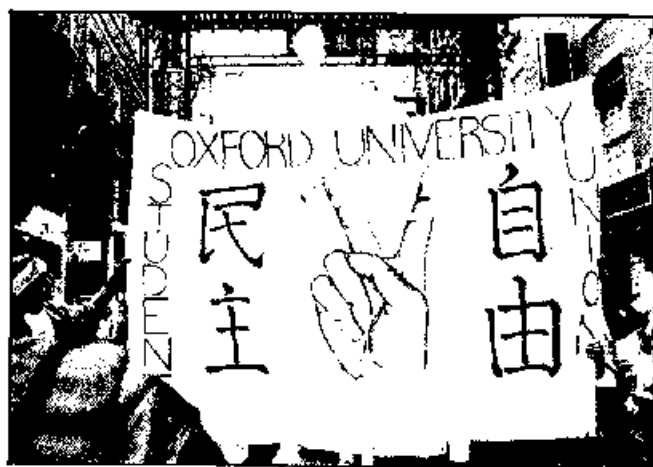 OXFORD UNIVERSITY
STUDEN
UNION
民主
自由